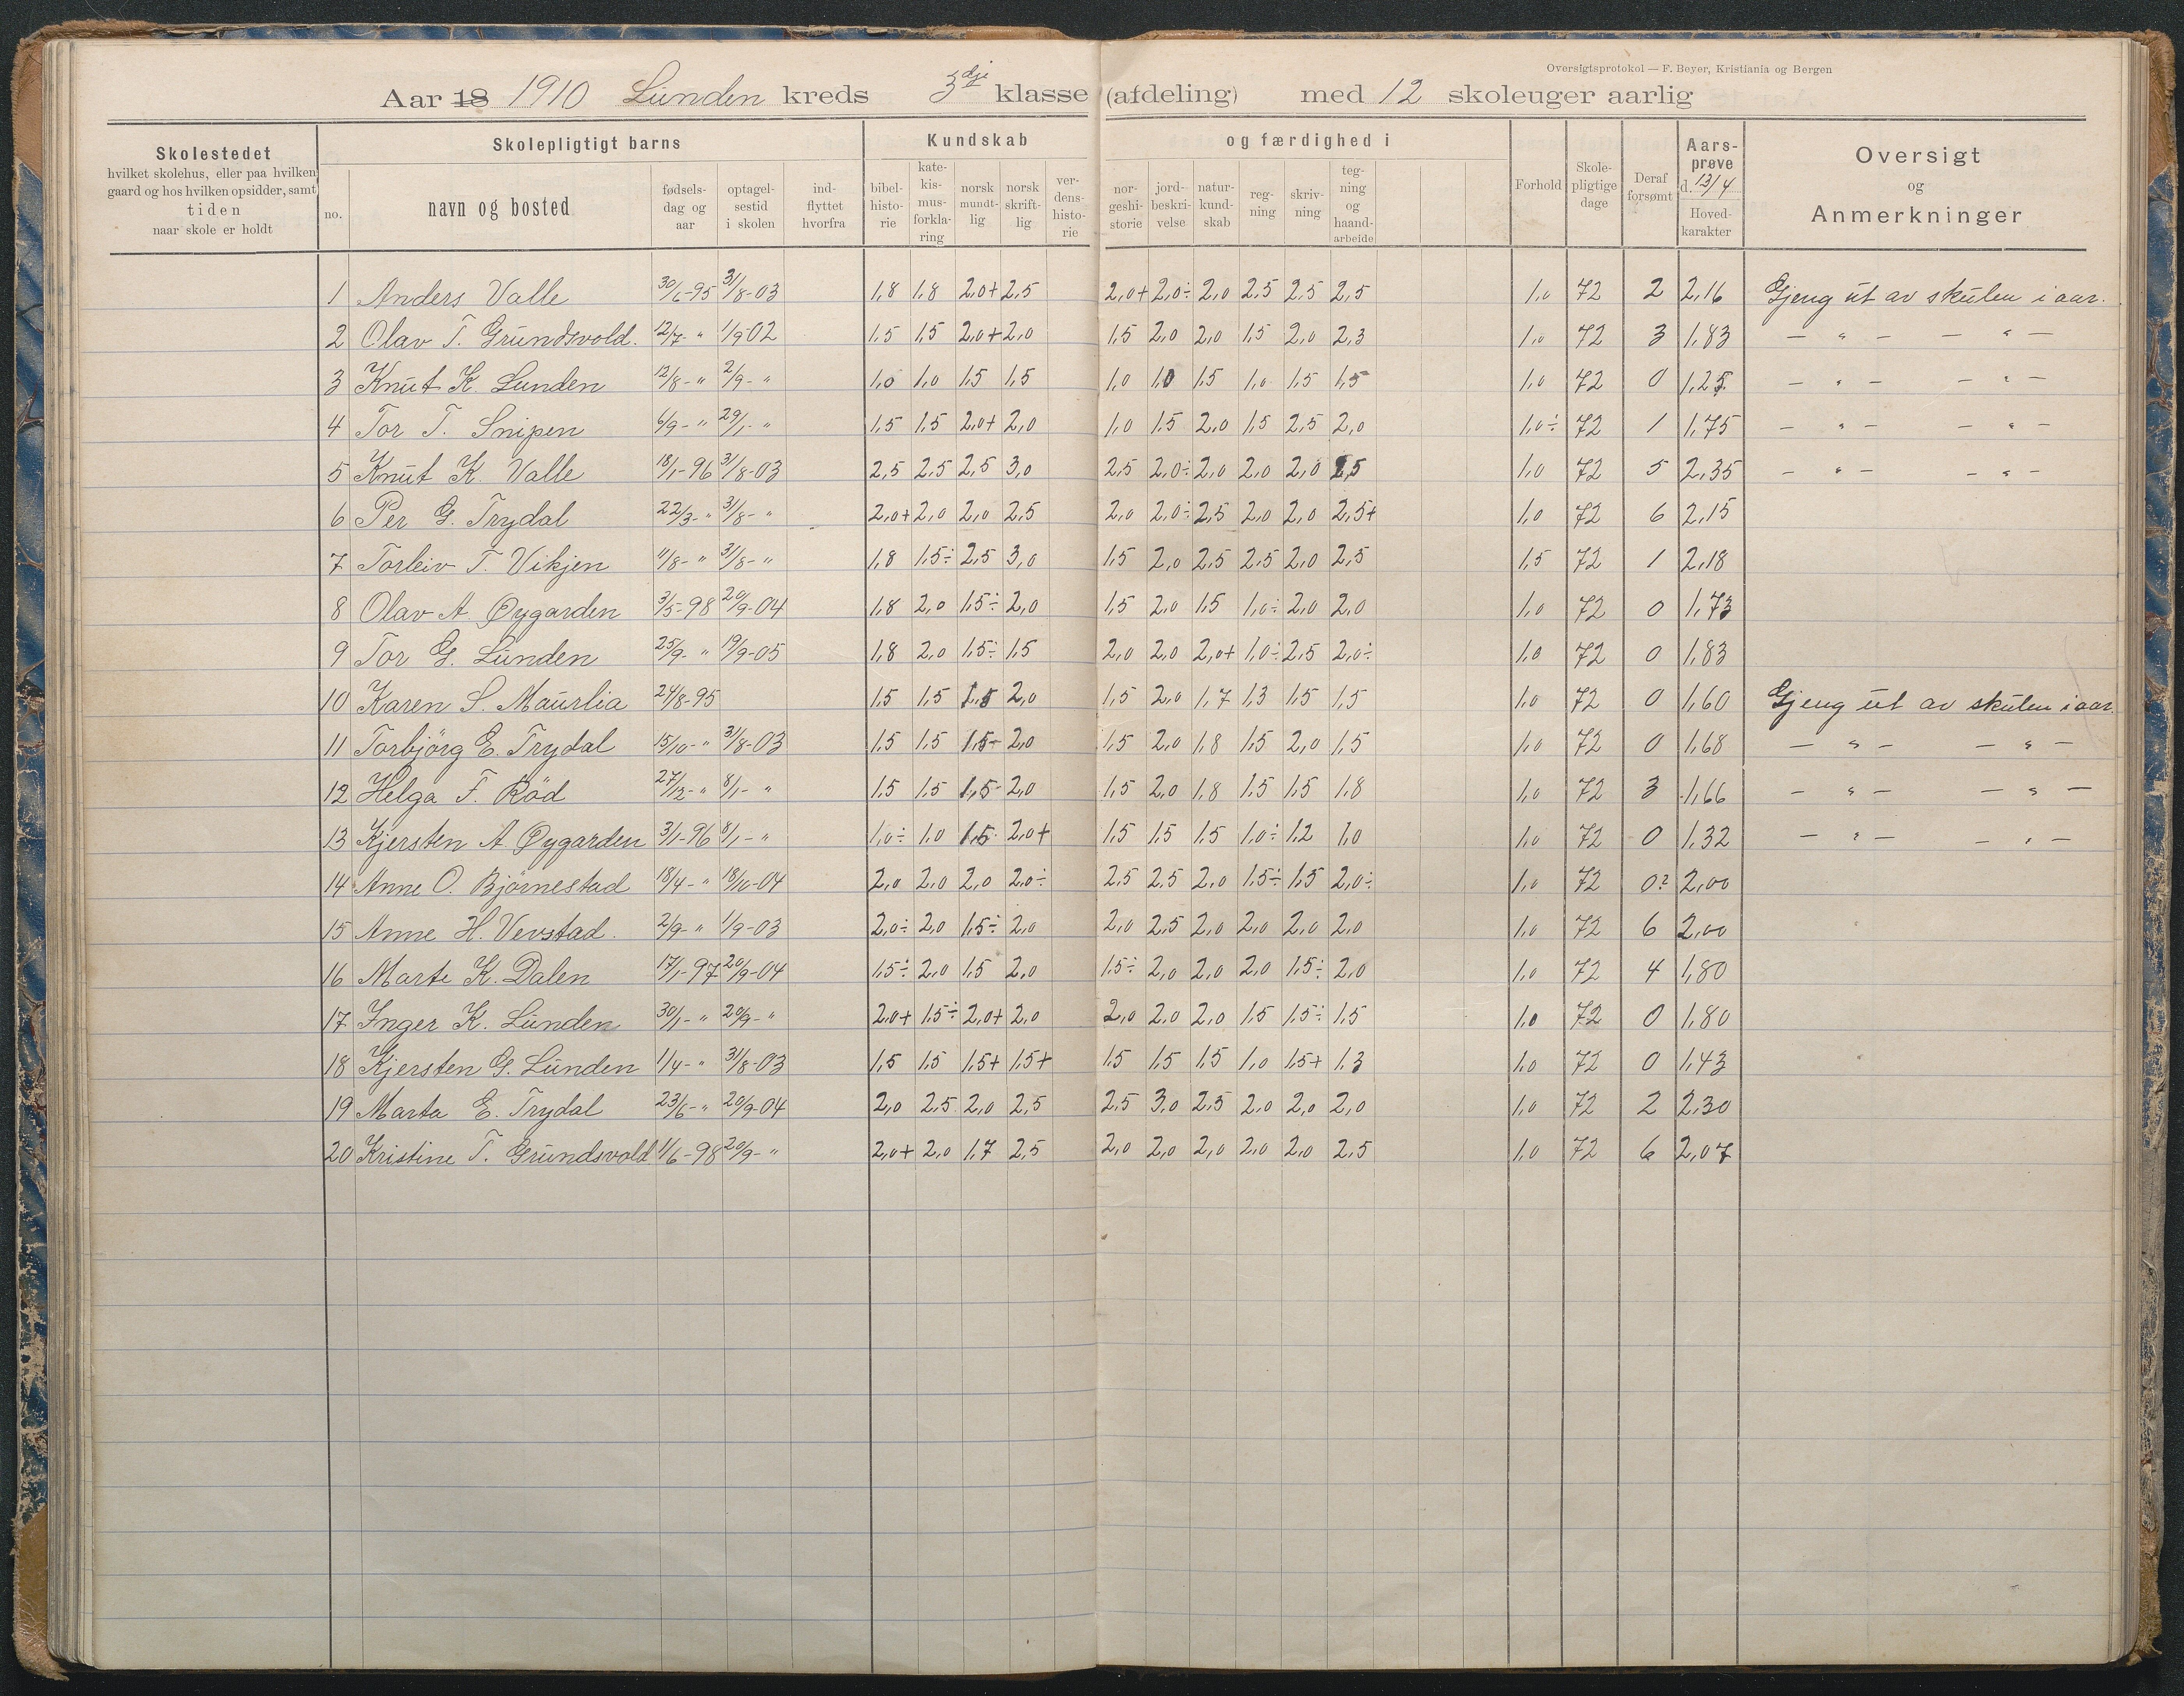 Oversigtsprotokol — F. Beyer, Kristiania og Bergen
Aar 18 1910 Lunden kreds 3dje klasse (afdeling) med 12 skoleuger aarlig
Skolestedet hvilket skolehus, eller paa hvilken gaard og hos hvilken opsidder, samt tiden naar skole er holdt
Skolepligtigt barns
no. navn og bosted fødselsdag og aar optagelsestid i skolen indflyttet hvorfra
Kundskab og færdighed i
bibelhistorie katekismusforklaring norsk mundtlig norsk skriftlig verdenshistorie norgeshistorie jordbeskrivelse naturkundskab regning skrivning tegning og haandarbeide
Forhold Skolepligtige dage Deraf forsømt Aarsprøve d. 13/4 Hovedkarakter
Oversigt og Anmerkninger
1 Anders Valle 30/6-95 31/8-03 1,8 1,8 2,0+ 2,5 2,0+ 2,0÷ 2,0 2,5 2,5 2,5 1,0 72 2 2,16 Gjeng ut av skulen i aar.
2 Olav T. Grundsvold. 12/7- " 1/9 02 1,5 1,5 2,0+ 2,0 1,5 2,0 2,0 1,5 2,0 2,3 1,0 72 3 1,83 — " — — " —
3 Knut K. Lunden 12/8- " 2/9- " 1,0 1,0 1,5 1,5 1,0 1,0 1,5 1,0 1,5 1,5 1,0 72 0 1,25 — " — — " —
4 Tor T. Snipen 6/9- " 29/1- " 1,5 1,5 2,0+ 2,0 1,0 1,5 2,0 1,5 2,5 2,0 1,0÷ 72 1 1,75 — " — — " —
5 Knut K. Valle 18/1-96 31/8-03 2,5 2,5 2,5 3,0 2,5 2,0÷ 2,0 2,0 2,0 2,5 1,0 72 5 2,35 — " — — " —
6 Per G. Trydal 22/3- " 31/8- " 2,0+ 2,0 2,0 2,5 2,0 2,0÷ 2,5 2,0 2,0 2,5+ 1,0 72 6 2,15
7 Torleiv T. Vikjen 11/8- " 31/8- " 1,8 1,5÷ 2,5 3,0 1,5 2,0 2,5 2,5 2,0 2,5 1,5 72 1 2,18
8 Olav A. Øygarden 3/5-98 20/9-04 1,8 2,0 1,5÷ 2,0 1,5 2,0 1,5 1,0÷ 2,0 2,0 1,0 72 0 1,73
9 Tor G. Lunden 25/9- " 19/9-05 1,8 2,0 1,5÷ 1,5 2,0 2,0 2,0+ 1,0÷ 2,5 2,0÷ 1,0 72 0 1,83
10 Karen S. Maurlia 24/8-95 1,5 1,5 1,5 2,0 1,5 2,0 1,7 1,3 1,5 1,5 1,0 72 0 1,60 Gjeng ut av skulen i aar.
11 Torbjörg E. Trydal 15/10- " 31/8-03 1,5 1,5 1,5- 2,0 1,5 2,0 1,8 1,5 2,0 1,5 1,0 72 0 1,68 — " — — " —
12 Helga F. Röd 27/12- " 8/1- " 1,5 1,5 1,5- 2,0 1,5 2,0 1,8 1,5 1,5 1,8 1,0 72 3 1,66 — " — — " —
13 Kjersten A. Øygarden 3/1-96 8/1- " 1,0÷ 1,0 1,5 2,0+ 1,5 1,5 1,5 1,0÷ 1,2 1,0 1,0 72 0 1,32 — " — — " —
14 Anne O. Björnestad 18/4- " 18/10-04 2,0 2,0 2,0 2,0÷ 2,5 2,5 2,0 1,5÷ 1,5 2,0÷ 1,0 72 0? 2,00
15 Anne H. Vevstad. 2/9- " 1/9-03 2,0÷ 2,0 1,5÷ 2,0 2,0 2,5 2,0 2,0 2,0 2,0 1,0 72 6 2,00
16 Marte K. Dalen 17/1-97 20/9-04 1,5÷ 2,0 1,5 2,0 1,5÷ 2,0 2,0 2,0 1,5÷ 2,0 1,0 72 4 1,80
17 Inger K. Lunden 30/1- " 20/9- " 2,0+ 1,5÷ 2,0+ 2,0 2,0 2,0 2,0 1,5 1,5÷ 1,5 1,0 72 0 1,80
18 Kjersten G. Lunden 1/4- " 31/8-03 1,5 1,5 1,5+ 1,5+ 1,5 1,5 1,5 1,0 1,5+ 1,3 1,0 72 0 1,43
19 Marta E. Trydal 23/6- " 20/9-04 2,0 2,5 2,0 2,5 2,5 3,0 2,5 2,0 2,0 2,0 1,0 72 2 2,30
20 Kristine T. Grundsvold 1/6-98 20/9- " 2,0+ 2,0 1,7 2,5 2,0 2,0 2,0 2,0 2,0 2,5 1,0 72 6 2,07